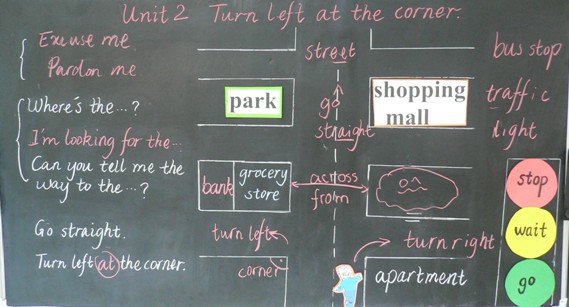 Unit 2 Turn left at the corner.
Excuse me
Pardon me
Where's the...?
I'm looking for the...
Can you tell me the
way to the...?
Go straight.
Turn left at the corner.
street
park
go
straight
shopping
mall
bank
grocery
store
across
from
turn left
corner
turn right
apartment
bus stop
traffic
light
stop
wait
go